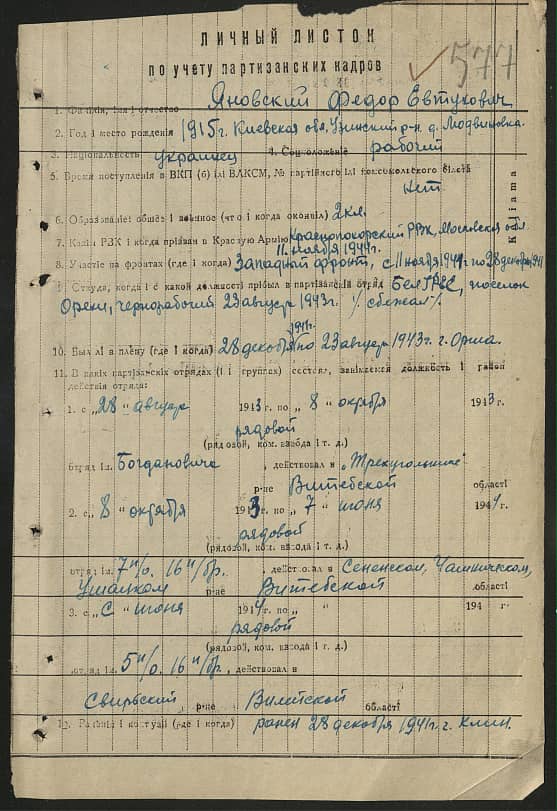 577
ЛИЧНЫЙ ЛИСТОК
по учету партизанских кадров
1. Фамілія, імя і отчество Яновский Федор Евтухович
2. Год і место рождения 1915г. Киевская обл. Узинский р-н. д. Людвиновка.
3. Национальность украинец 4. Соц. положение рабочий
5. Время поступления в ВКП (б) ілі ВЛКСМ, № партійного ілі комсомольского білета
нет
6. Образованіе: общее і военное (что і когда окончіл) 2 кл.
7. Каким РВК і когда прізван в Красную Армію Краснополорский РВК, Московская обл.
11 ноября 1941г.
8. Участіе на фронтах (где і когда) Западный фронт, с 11 ноября 1941г по 28 декабря 1941
9. Откуда, когда і с какой должності прібыл в партізанскій отряд БелГРЭС, поселок
Орехи, чернорабочий 23 август 1943г. /сбежал/.
10. Был лі в плену (где і когда) 28 декабря 1941г. по 23 август 1943г. г. Орша.
11. В какіх партізанскіх отрядах (і і группах) состоял, занімаемая должность і район
действія отряда:
1. с „28" август 1943 г. по „8" октября 1943г.
рядовой
(рядовой, ком. взвода і т. д.)
отряд ім. Богдановича, действовал в „Трехугольнике"
р-не Витебской області
2. с „8" октября 1943 г. по „7" июня 1944 г.
рядовой
(рядовой, ком. взвода і т. д.)
отряд ім. 7 п/о. 16 п/бр., действовал в Сененском, Чашникском,
Ушацком р-не Витебской області
3. с „С" июня 1944 г. по „ " 194 г.
рядовой
(рядовой, ком. взвода і т. д.)
отряд ім. 5 п/о. 16 п/бр, действовал в
Свирьский р-не Вилейской області
12. Раненія і контузіі (где і когда) ранен 28 декабря 1941 г. г. Клин.